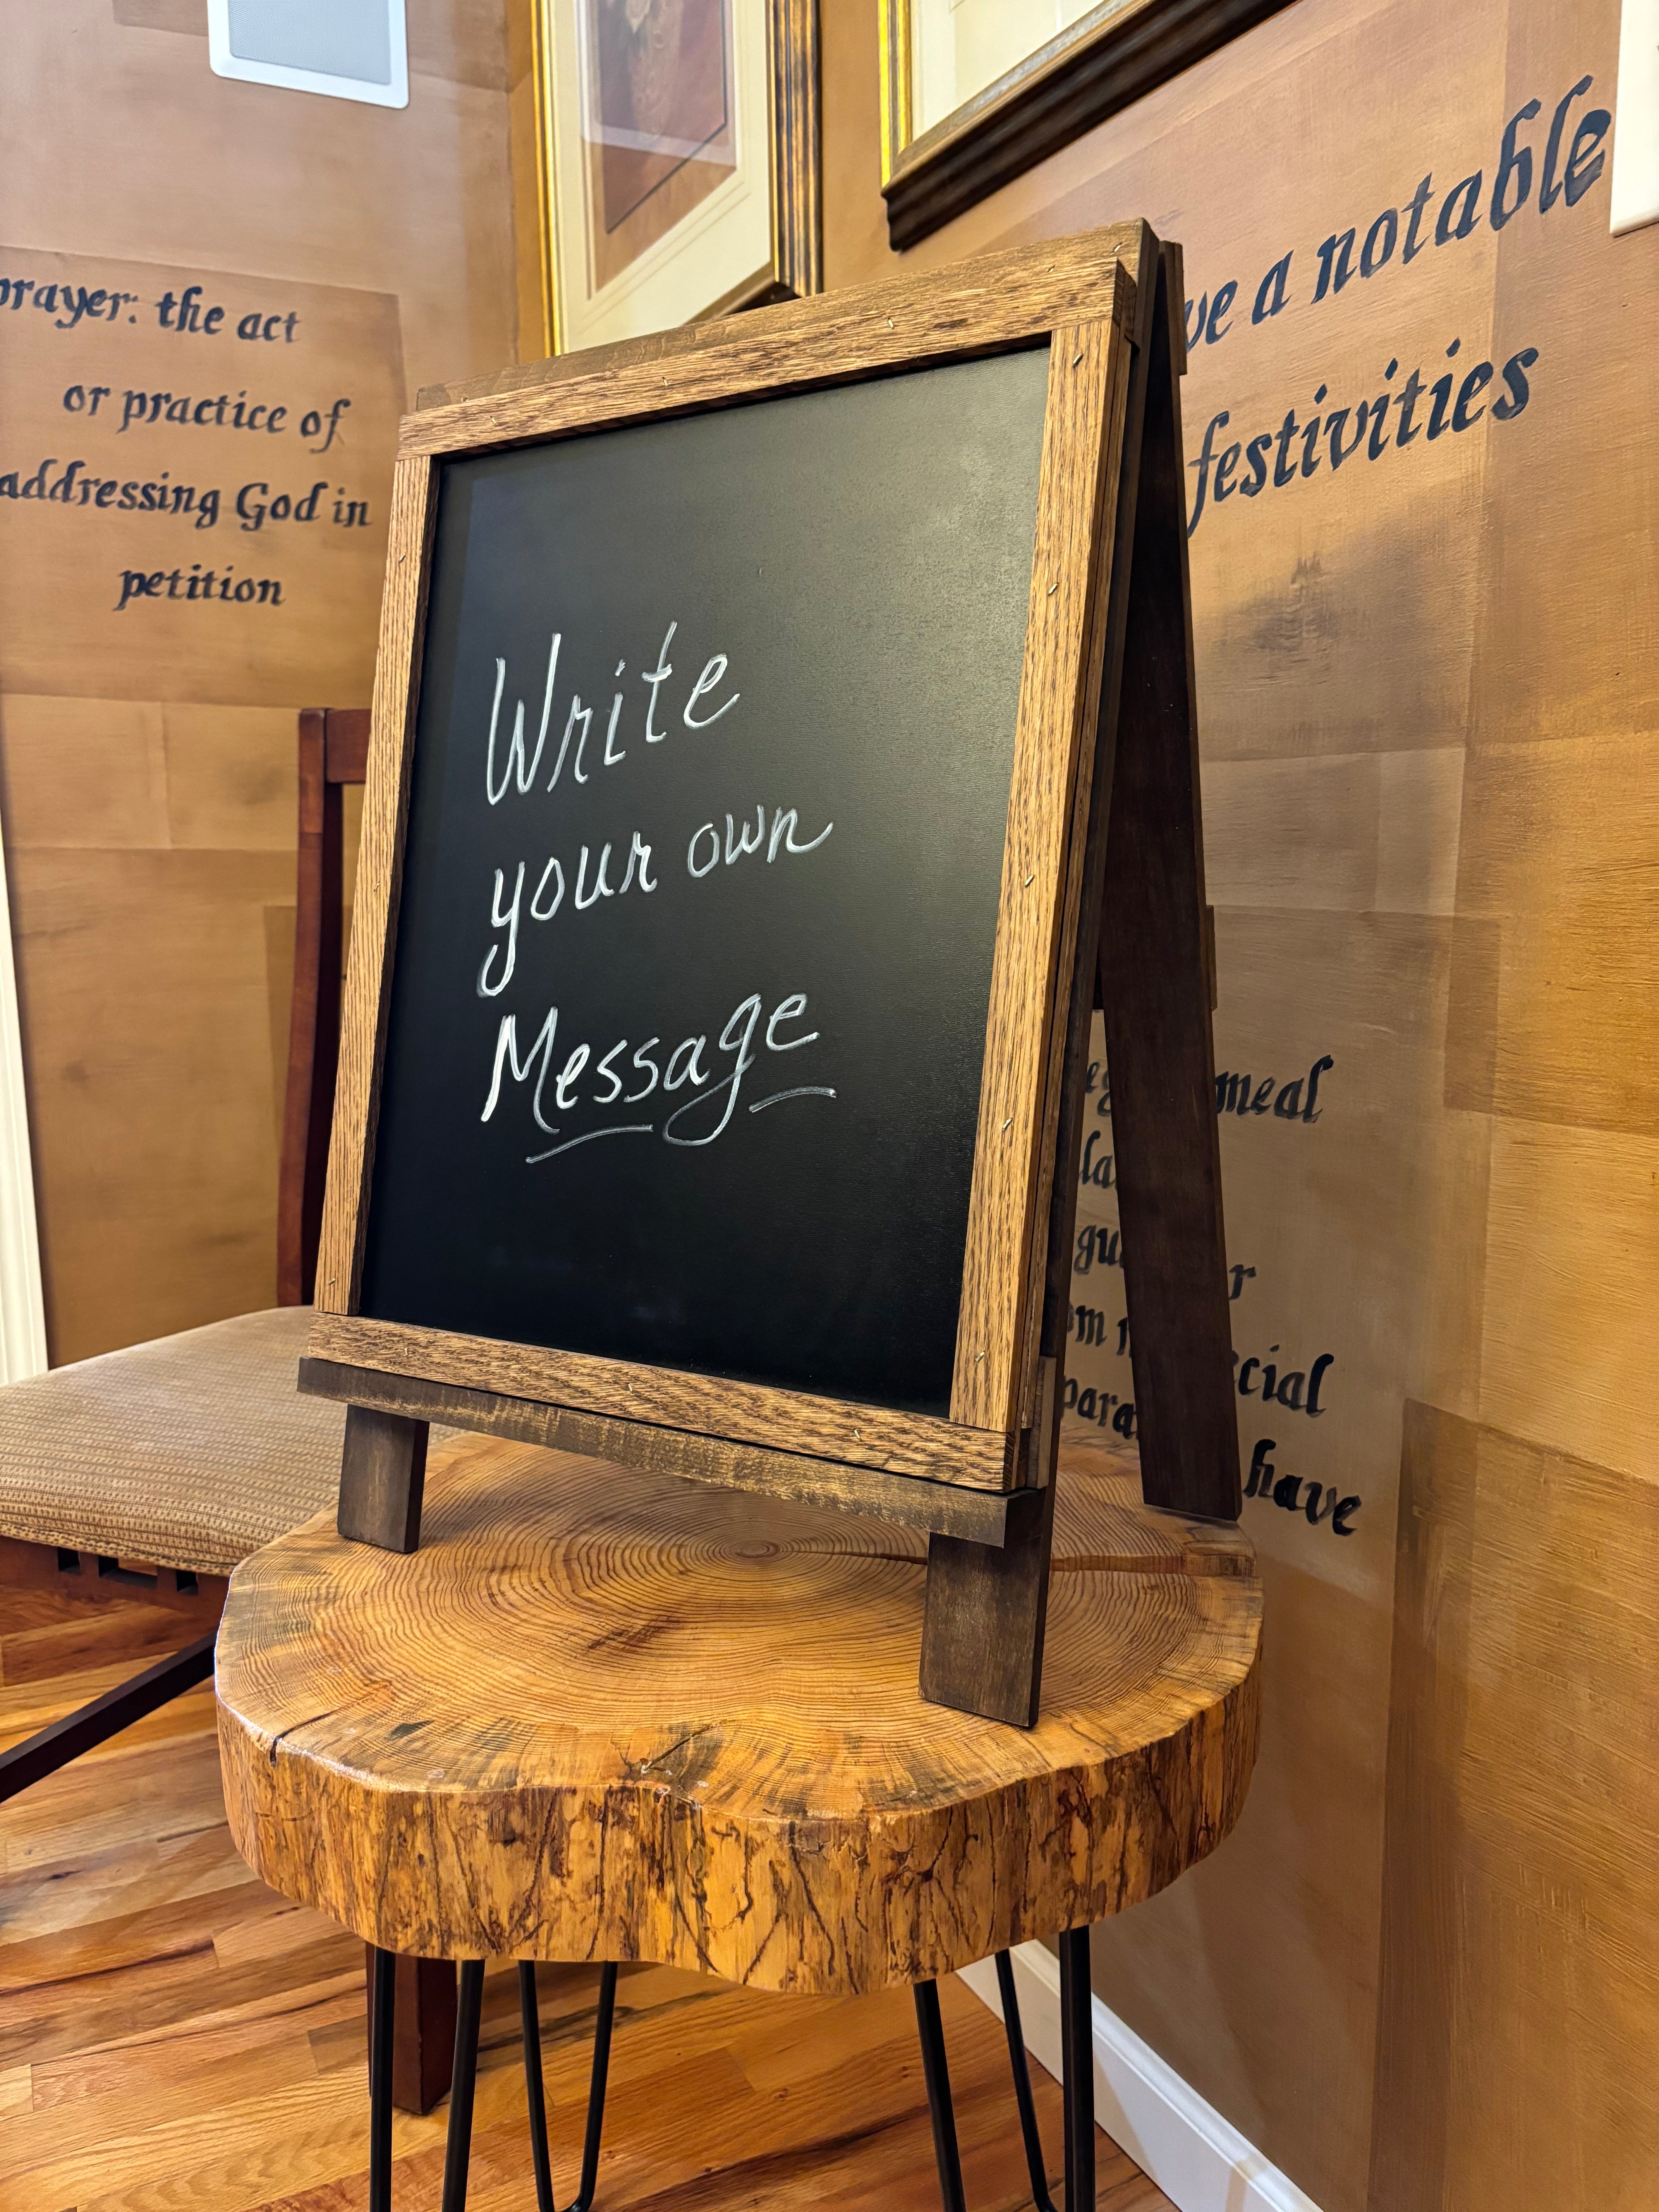 prayer: the act
or practice of
addressing God in
petition
Write
your own
Message
a notable
festivities
meal
have